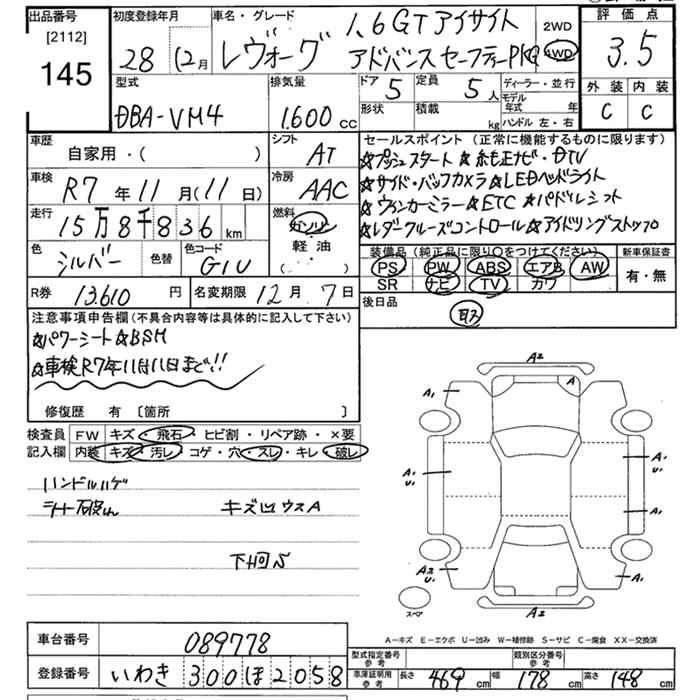 出品番号
[2112]
145
初度登録年月
28 12月
車名・グレード
レヴォーグ
1.6GTアイサイト
アドバンスセーフティーPKG
2WD
4WD
評価点
3.5
外装 内装
C C
型式
DBA-VM4
排気量
1.600 CC
ドア 5
定員 5人
形状
積載 kg
ディーラー・並行
モデル年式 年
ハンドル 左・右
車歴
自家用・( )
シフト
AT
車検
R7年11月(11日)
冷房
AAC
走行
15万8千836km
燃料
ガソリン
軽油
( ・ )
色
シルバー
色替
色コード
G1U
セールスポイント(正常に機能するものに限ります)
☆プッシュスタート☆純正ナビ・DTV
☆サイド・バックカメラ☆LEDヘッドライト
☆ウィンカーミラー☆ETC☆パドルシフト
☆レダークルーズコントロール☆アイドリングストップ
装備品(純正品に限り○をつけてください)
PS PW ABS エアB AW
SR ナビ TV カワ
新車保証書
有・無
R券 13.610円
名変期限 12月7日
後日品
取
注意事項申告欄(不具合内容等は具体的に記入して下さい)
☆パワーシート☆BSM
☆車検R7年11月11日まで!!
修復歴 有 [箇所 ]
検査員記入欄
FW キズ・飛石・ヒビ割・リペア跡・×要
内装 キズ・汚レ・コゲ・穴・スレ・キレ・破レ
ハンドルハゲ
シート破れ
キズ凹ウスA
下回S
A2
A1 A
A1 U1
A1 U1
A1
A2 U1
A1
A2
スペア
A-キズ E-エクボ U-凹み W-補修跡 S-サビ C-腐食 XX-交換済
車台番号 089778
登録番号 いわき 300 ほ 2058
型式指定番号 参考
類別区分番号 参考
車庫証明用 参考
長さ 469cm 幅 178cm 高さ 148cm